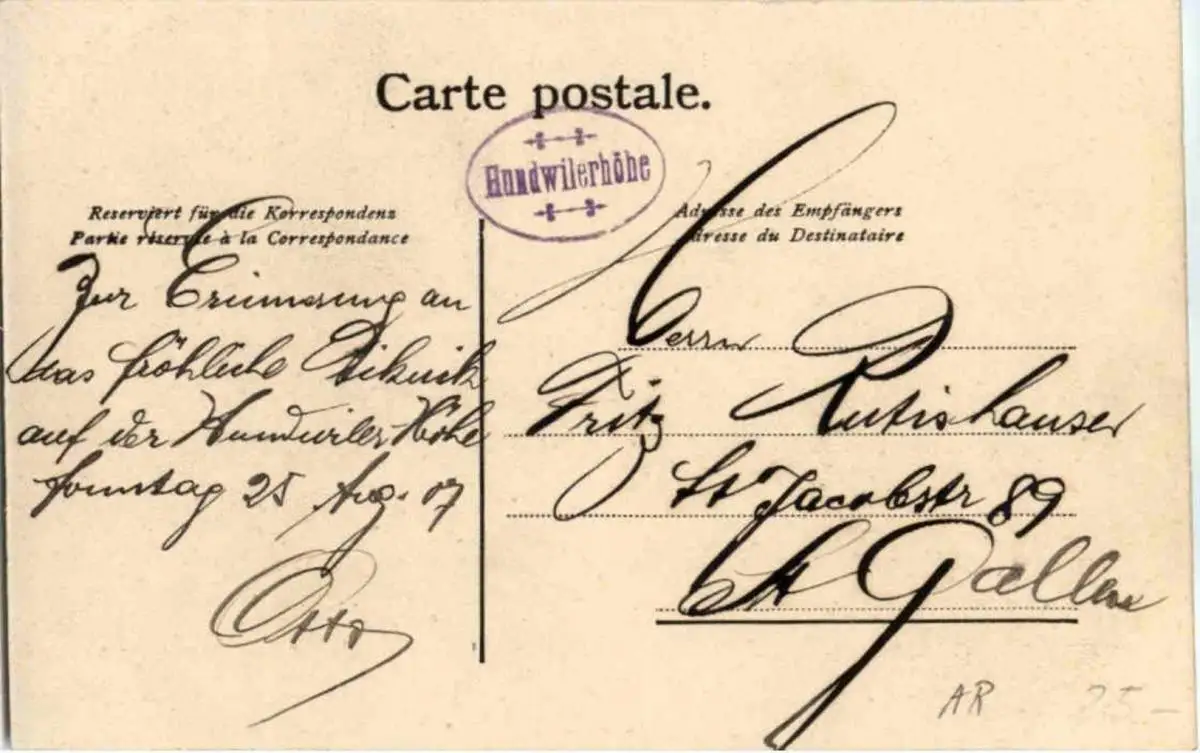 Carte postale.
Hundwilerhöhe
Reserviert für die Korrespondenz
Partie réservée à la Correspondance
Adresse des Empfängers
Adresse du Destinataire
Zur Erinnerung an
das fröhliche Piknik
auf der Hundwiler Höhe
Sonntag 25 Aug. 07
Otto
Herrn
Fritz Rutishauser
St Jacobstr 89
St Gallen
AR 25.-